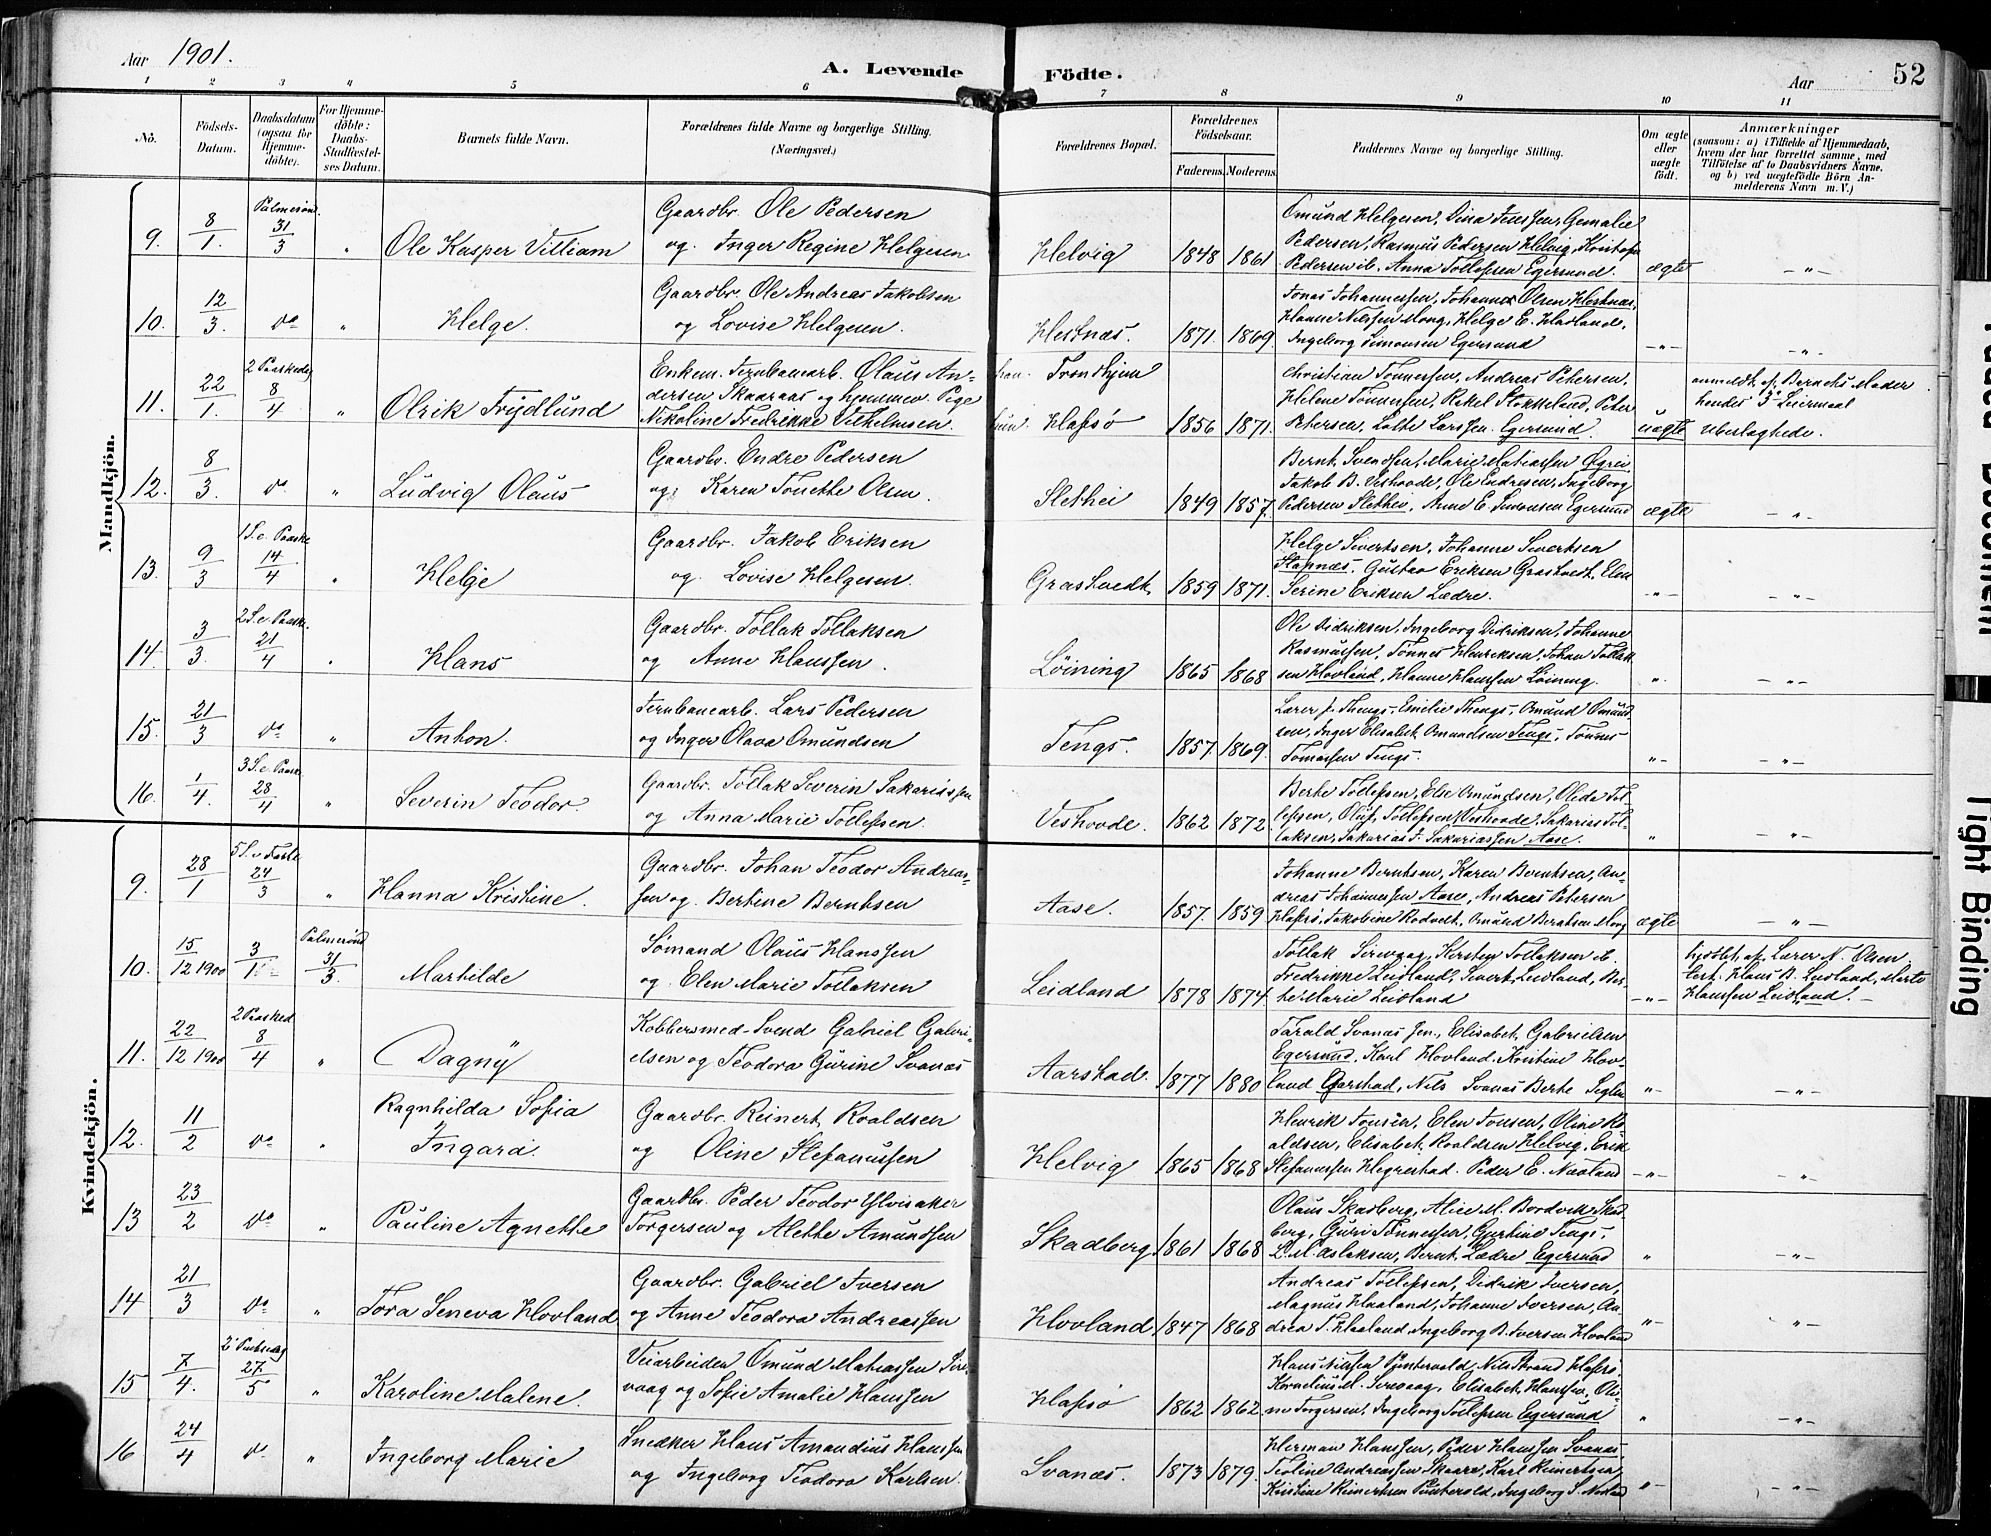 Aar 1901.
A. Levende Födte.
Aar
52
1 2 3 4 5 6 7 8 9 10 11
No.
Födsels-Datum.
Daabsdatum (ogsaa for Hjemmedöbte).
For Hjemmedöbte: Daabs-Stadfestelses Datum.
Barnets fulde Navn.
Forældrenes fulde Navne og borgerlige Stilling. (Næringsvei.)
Forældrenes Bopæl.
Forældrenes Födselsaar.
Faderens. Moderens.
Faddernes Navne og borgerlige Stilling.
Om ægte eller uægte födt.
Anmærkninger
(saasom: a) i Tilfælde af Hjemmedaab, hvem der har forrettet samme, med Tilföielse af to Daabsvidners Navne. og b) ved uægtefödte Börn Anmelderens Navn m. V.)
Mandkjön.
9. 8/1. Palmesönd. 31/3 " Ole Kasper Villiam
Gaardbr. Ole Pedersen
og Inger Regine Helgesen
Helvig 1848 1861
Omund Helgesen, Dina Jenssen, Gemalie
Pedersen, Rasmus Pedersen Helvig, Kristofer
Pedersen ib. Anna Tollefsen Egersund.
ægte -"-
10. 12/3. do " Helge.
Gaardbr. Ole Andreas Jakobsen
og Lovise Helgesen.
Hestnæs. 1871. 1869.
Jonas Johannessen, Johanne Olsen Hestnæs,
Hanne Nilssen Mong, Helge E. Havland,
Ingeborg Simonsen Egersund
-"- -"-
11. 22/1. 2 Paaskedag 8/4 " Olrik Frydlund
Enkem. Jernbanearb. Olaus An-
dersen Skaaraas og hjemmev. Pige
Nikoline Fredrikke Vilhelmsen.
han. Trondhjem
hun. Hafsø 1856 1871.
Christian Tønnessen, Andreas Petersen,
Helene Tønnessen, Rakel Stokkeland, Peter
Petersen, Lotte Larssen. Egersund.
uægte
anmeldt af Barnets Moder
hendes 3die Leiermaal
Uberlagtede.
12. 8/3. do " Ludvig Olaus
Gaardbr. Endre Pedersen
og Karen Tonette Olsen.
Slethei 1849 1857.
Bernt Svendsen, Marie Matiassen Øgrei,
Jakob B. Veshovde, Ole Endresen, Ingeborg
Pedersen Slethei, Anne E. Simonsen Egersund
ægte -"-
13. 9/3 1 S. e. Paaske 14/4 " Helge
Gaardbr. Jakob Eriksen
og Lovise Helgesen.
Grastvedt 1859 1871.
Helge Sivertsen, Johanne Sivertsen
Stapnæs, Gustav Eriksen Grastvedt, Elen
Serine Eriksen Lædre.
-"- -"-
14. 3/3. 2 S. e. Paaske. 21/4 " Hans
Gaardbr. Tollak Tollaksen
og Anne Hanssen.
Løining 1865 1868
Ole Didriksen, Ingeborg Didriksen, Johanne
Rasmussen, Tønnes Henriksen, Johan Tollak-
sen Hovland, Hanne Hanssen Løining.
" -"-
15. 21/3 do " Anton.
Jernbanearb. Lars Pedersen
og Inger Olava Omundsen
Tengs. 1857. 1869.
Lærer P. Thengs, Emilie Thengs, Omund Omund-
sen, Inger Elisabet Omundsen Tengs, Tønnes
Tomassen Tengs.
-"- -"-
16. 1/4. 3 S. e. Paaske 28/4 " Severin Teodor.
Gaardbr. Tollak Severin Sakariassen
og Anna Marie Tollefsen.
Veshovde. 1862 1872.
Berte Tollefsen, Else Omundsen, Oleda Tol-
lefsen, Oluf Tollefsen Veshovde, Sakarias Tol-
laksen, Sakarias J. Sakariassen Aase.
" -"-
Kvindekjön.
9. 28/1 5 S. i Faste 24/3 " Hanna Kristine.
Gaardbr. Johan Teodor Andreas-
sen og Bertine Berntsen
Aase. 1857. 1859
Johanne Berntsen, Karen Berntsen, An-
dreas Johannessen Aase, Andreas Petersen
Hafsø, Jakobine Rodvelt, Omund Berntsen Mong
ægte -"-
10. 15/12 1900 3/1 Palmesönd 31/3. Martilde
Sømand Olaus Hanssen
og Elen Marie Tollaksen
Leidland 1878 1874.
Tollak Sirevaag, Kirsten Tollaksen ib.
Fredrikke Leidland, Sivert Leidland, Ber-
te Marie Leidland
-"-
hjdøbt af Lærer N. Olsen.
Test. Hans B. Leidland, Marte
Hanssen Leidland. -
11. 22/12 1900 2 Paasked 8/4 " Dagny
Kobbersmed Svend Gabriel Gabri-
elsen og Teodora Gurine Svanæs
Aarstad. 1877 1880
Tarald Svanæs sen., Elisabet Gabrielsen
Egersund, Karl Hovland, Kristine Hov-
land Aarstad, Nils Svanæs Berte Seglem
-"- -"-
12. 11/2 do " Ragnhilda Sofia
Ingard.
Gaardbr. Reinert Roaldsen
og Oline Stefanussen
Helvig 1865 1868
Henrik Tonsen, Elen Tonsen, Oline Ro-
aldsen, Elisabet Roaldsen Helvig, Erik
Stefanussen Hegrestad. Peder E. Nodland
-"- "
13 23/2 do " Pauline Agnette
Gaardbr. Peder Teodor Ylvisaker
Torgersen og Alette Amundsen
Skadberg 1861 1868
Olaus Skadberg, Alice M. Bordvik Skad-
berg, Guri Tønnessen, Gurtine Tengs,
L. M. Aslaksen, Bernt Lædre Egersund
" -"-
14 21/3 do " Tora Seneva Hovland
Gaardbr. Gabriel Iversen
og Anne Teodora Andreassen
Hovland 1847 1868
Andreas Tollefsen, Didrik Iversen,
Magnus Haaland, Johanne Iversen, An-
drea T. Haaland, Ingeborg B. Iversen Hovland
-"- "
15 7/4. 2 Pintsedag 27/5 " Karoline Malene.
Veiarbeider Omund Matiassen Sire-
vaag og Sofie Amalie Hanssen
Hafsø 1862 1862
Hans Nilssen Puntervold, Nils Strand Hafsø,
Kornelius M. Sirevaag, Elisabet Hanssen, Oli-
ne Torgersen, Ingeborg Tollefsen Egersund
" -"-
16 24/4 do " Ingeborg Marie
Snedker Hans Amandius Hanssen
og Ingeborg Teodora Karlsen.
Svanæs. 1873 1879.
Herman Hanssen, Peder Hanssen Svanæs,
Teoline Andreassen Skaare, Karl Reinertsen,
Kristine Reinertsen Puntervold, Ingeborg S. Nodland
-"- -"-
Faded Document
Tight Binding